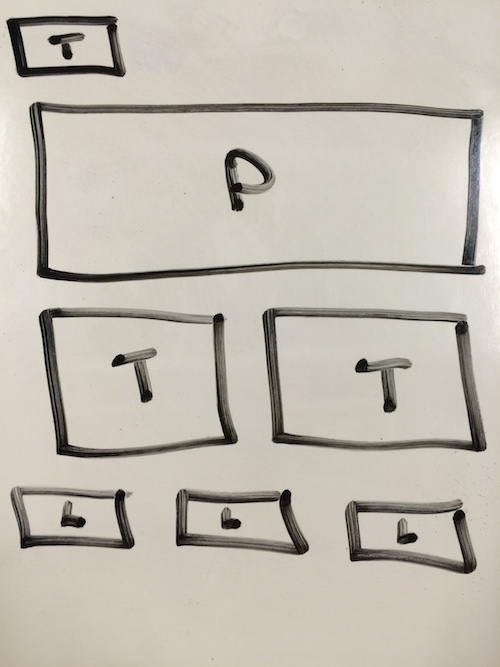 T
P
T T
L L L